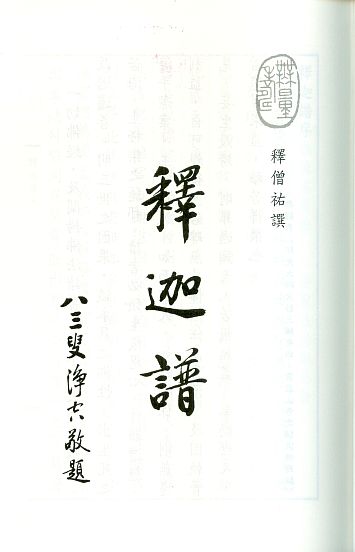 釋僧祐譔
釋迦譜
八三叟淨空敬題